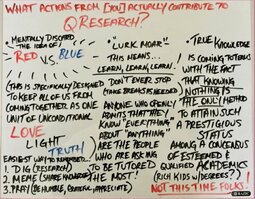 WHAT ACTIONS FROM [YOU] ACTUALLY CONTRIBUTE TO
Q RESEARCH?
• MENTALLY DISCARD
THE IDEA OF
RED VS. BLUE
(THIS IS SPECIFICALLY DESIGNED
TO KEEP ALL OF US FROM
COMING TOGETHER AS ONE
UNIT OF UNCONDITIONAL
LOVE
LIGHT
TRUTH)
EASIEST WAY TO REMEMBER...
1. DIG (RESEARCH)
2. MEME (SHARE KNOWLEDGE)
3. PRAY (BE HUMBLE, APPRECIATE)
• "LURK MOAR"
THIS MEANS...
LEARN, LEARN, LEARN!
DON'T EVER STOP
(TAKE BREAKS IF NEEDED)
ANYONE WHO OPENLY
ADMITS THAT THEY
KNOW "EVERYTHING"
ABOUT "ANYTHING"
ARE THE PEOPLE
WHO ARE ASKING
TO BE TUTORED
THE MOST!
• TRUE KNOWLEDGE
IS COMING TO TERMS
WITH THE FACT
THAT KNOWING
NOTHING IS
THE ONLY METHOD
TO ATTAIN SUCH
A PRESTIGIOUS
STATUS
AMONG A CONSENSUS
OF ESTEEMED &
QUALIFIED ACADEMICS
(RICH KIDS W/DEGREES??)
NOT THIS TIME FOLKS!